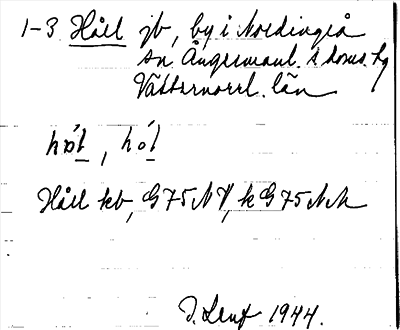 1-3 Håll jb, by i Nordingrå
sn Ångermanl. s doms. hg
Västernorrl. län
hɷ́t, hót
Håll kb, G75NV, k G75NN
J. Lenf 1944.